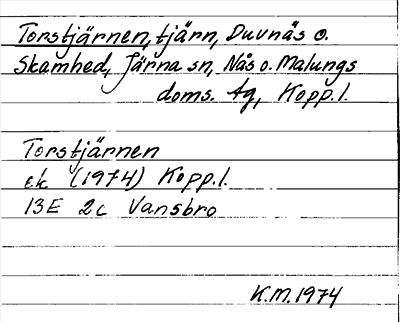 Torstjärnen, tjärn, Duvnäs o.
Skamhed, Järna sn, Nås o. Malungs
doms. tg, Kopp.l.
Torstjärnen
ek (1974) Kopp.l.
13E 2c Vansbro
K.M. 1974